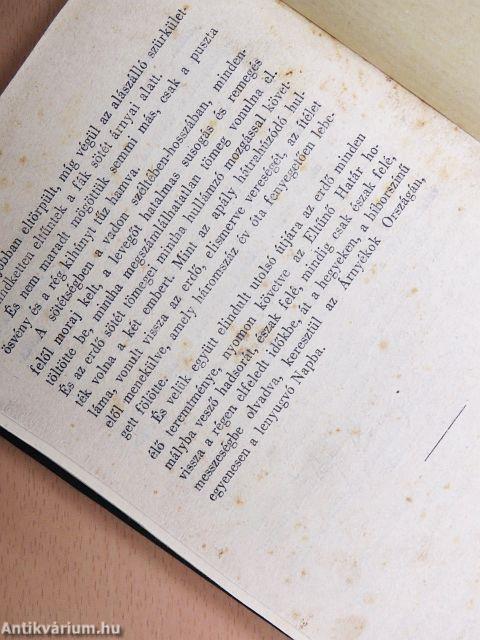 jobban eltörpült, míg végül az alászálló szürkület-
mindketten eltűntek a fák sötét árnyai alatt.
És nem maradt mögöttük semmi más, csak a puszta
ösvény és a rég kihunyt tűz hamva.
A sötétségben a vadon széltében-hosszában, minden-
felől moraj kelt, a levegőt hatalmas susogás és remegés
töltötte be, mintha megszámlálhatatlan tömeg vonulna el.
És az erdő sötét tömege, mintha hullámzó morgással követ-
ték volna a két embert. Mint az apály hátrahúzódó hul-
láma, vonult vissza az erdő, elismerve vereségét, az ítélet
elől menekülve, amely háromszáz év óta fenyegetően lebe-
gett fölötte.
És velük együtt elindult utolsó útjára az erdő minden
élő teremtménye, nyomon követve az Eltűnő Határ ho-
mályba vesző hadsorát, észak felé, mindig csak észak felé,
vissza a régen elfeledt időkbe, át a hegyeken, a bíborszínű
messzeségbe olvadva, keresztül az Árnyékok Országán,
egyenesen a lenyugvó Napba.
Antikvárium.hu